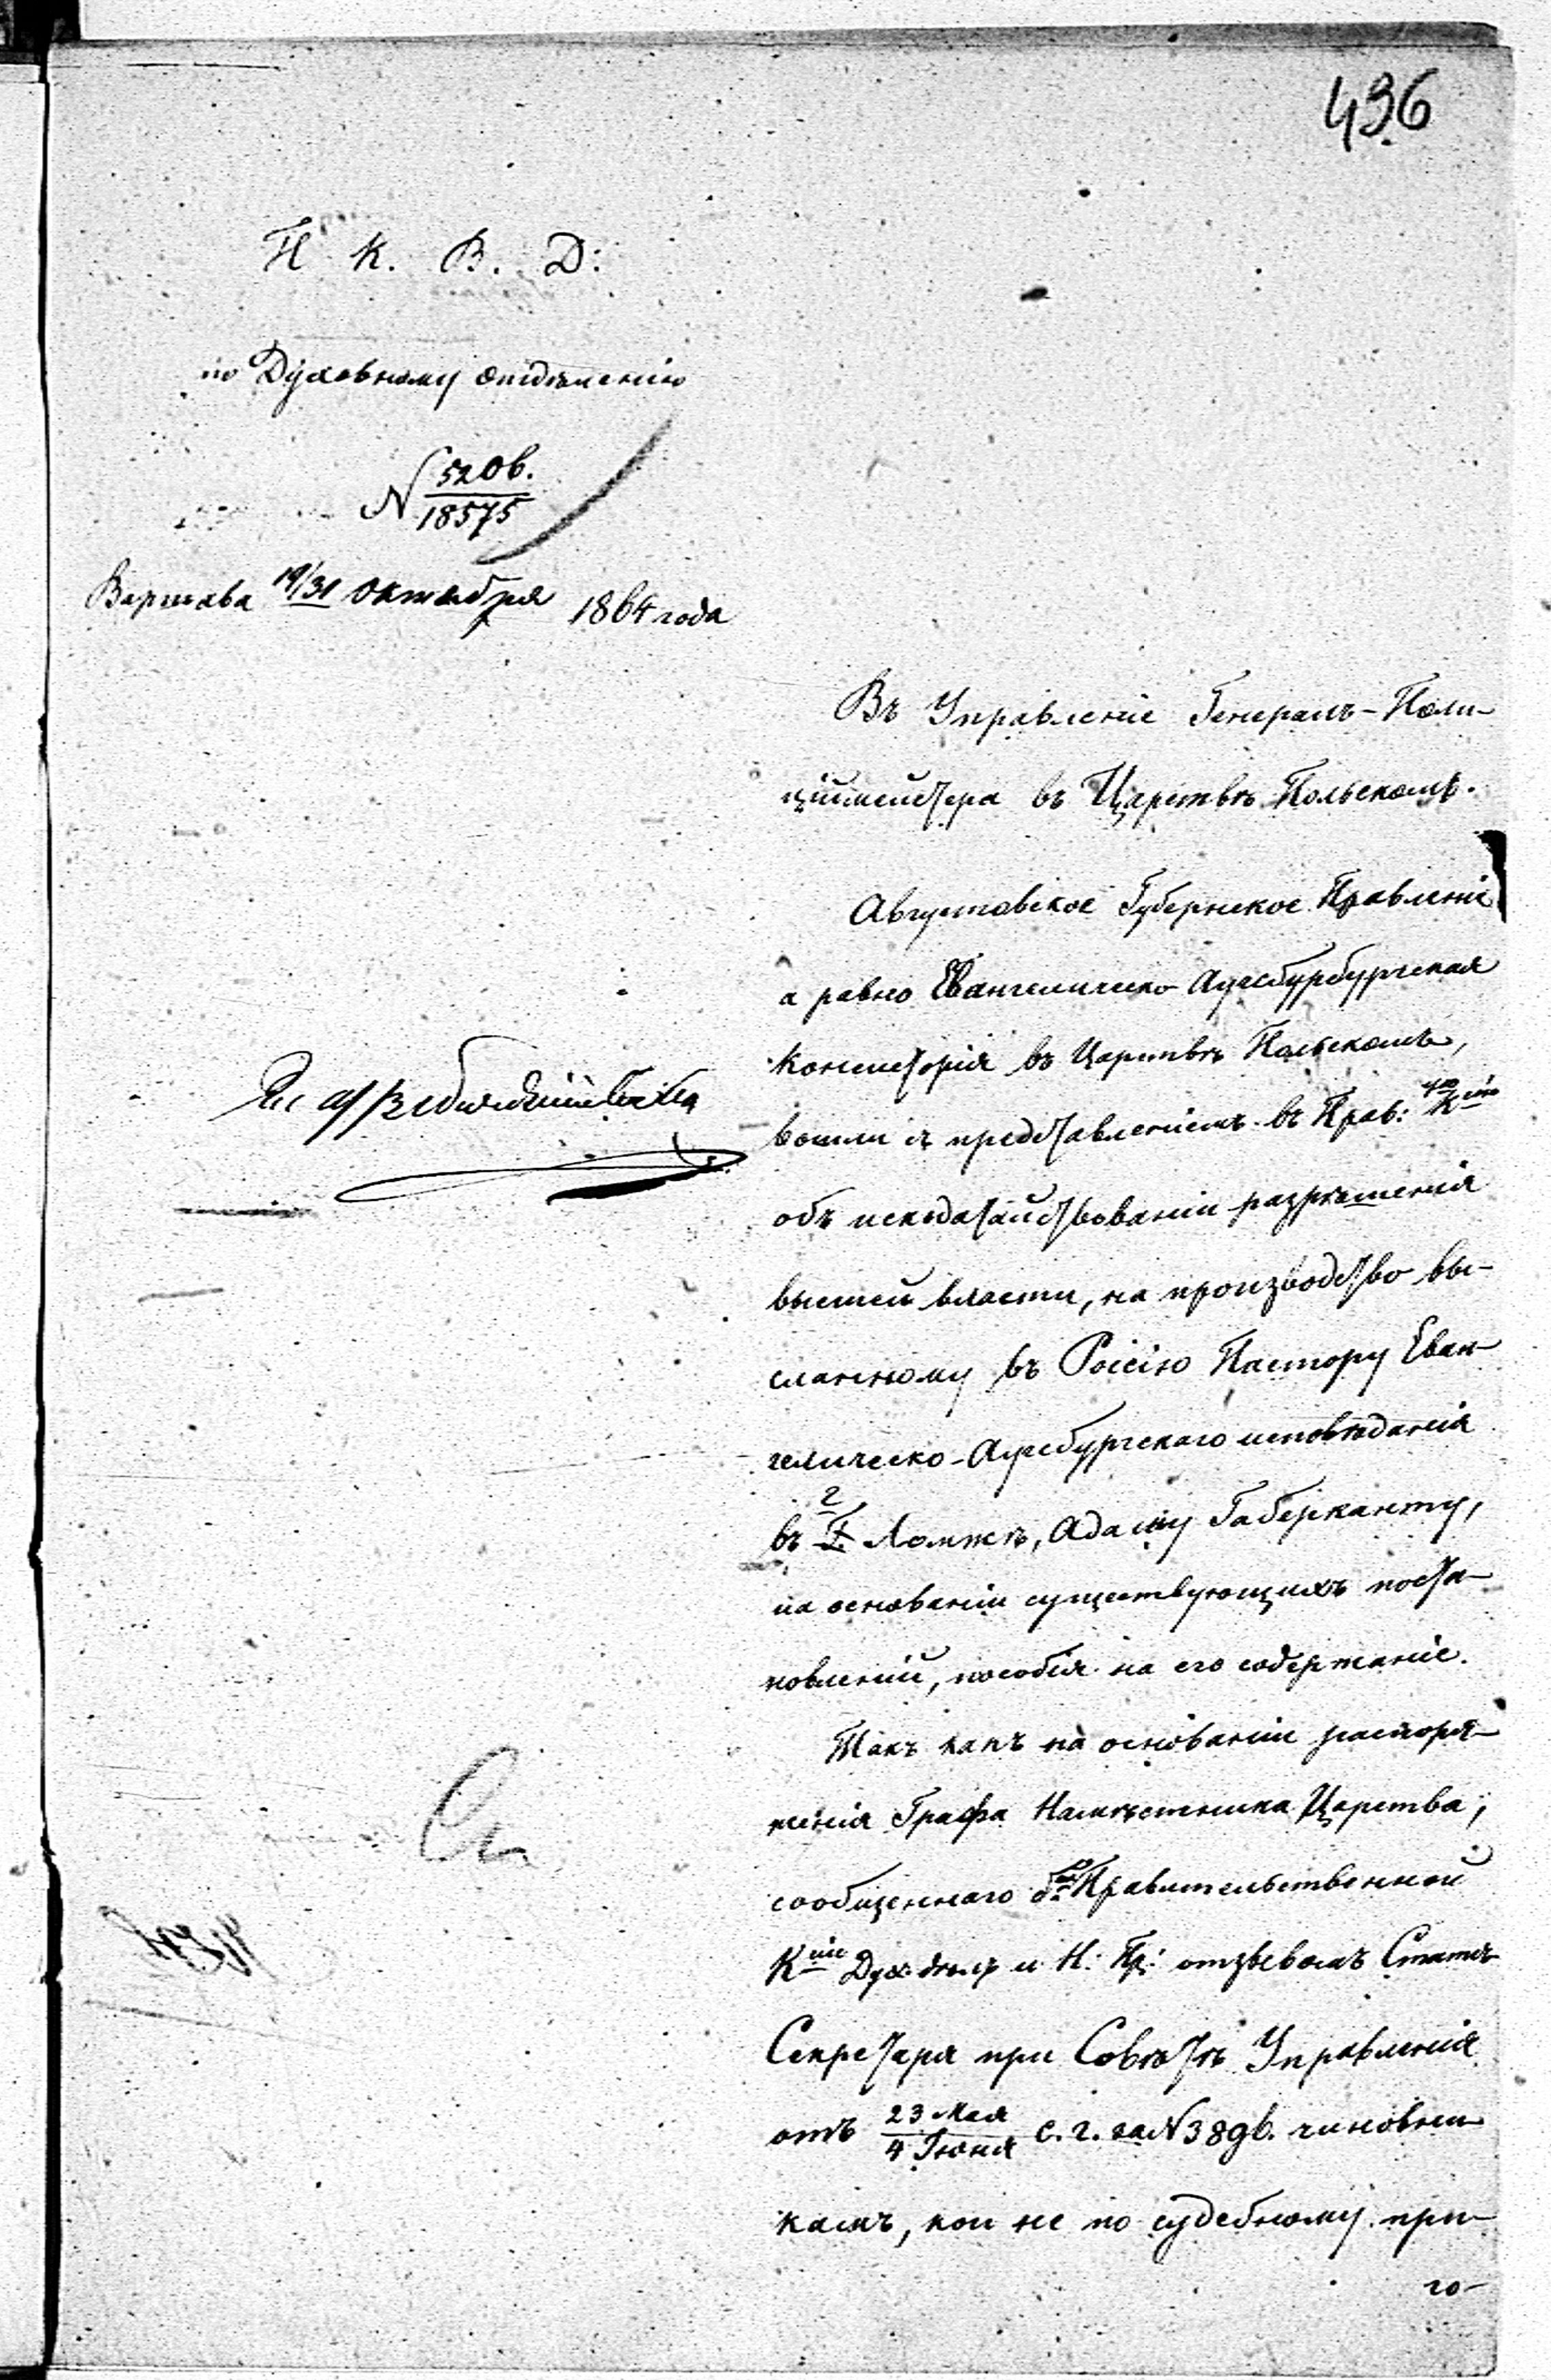 496
П. К. В. Д:
по Духовному отдѣленію
N 5206.
18575
Варшава 19/31 Октября 1864 года
Въ Управленіе Генералъ-Поли-
ціймейстера въ Царствѣ Польскомъ.
Августовское Губернское Правленіе
а равно Евангелическо Аугсбурбургская
Консисторія въ Царствѣ Польскомъ,
вошли съ представленіемъ въ Прав: Кцію
объ исходатайствованіи разрѣшенія
высшей власти, на производство вы-
сланному въ Россію Пастору Еван-
гелическо-Аугсбургскаго исповѣданія
въ Г. Ломжѣ, Адаму Габерканту,
на основаніи существующихъ поста-
новленій, пособія на его содержаніе.
Такъ какъ на основаніи распоря-
женія Графа Намѣстника Царства,
сообщеннаго Правительственной
Кціи Дух: дѣлъ и Н: Пр: отзывомъ Статсъ
Секретаря при Совѣтѣ Управленія
отъ 23 Мая
4 Іюня с. г. за N 3896. чиновни-
камъ, кои не по судебному при-
го-